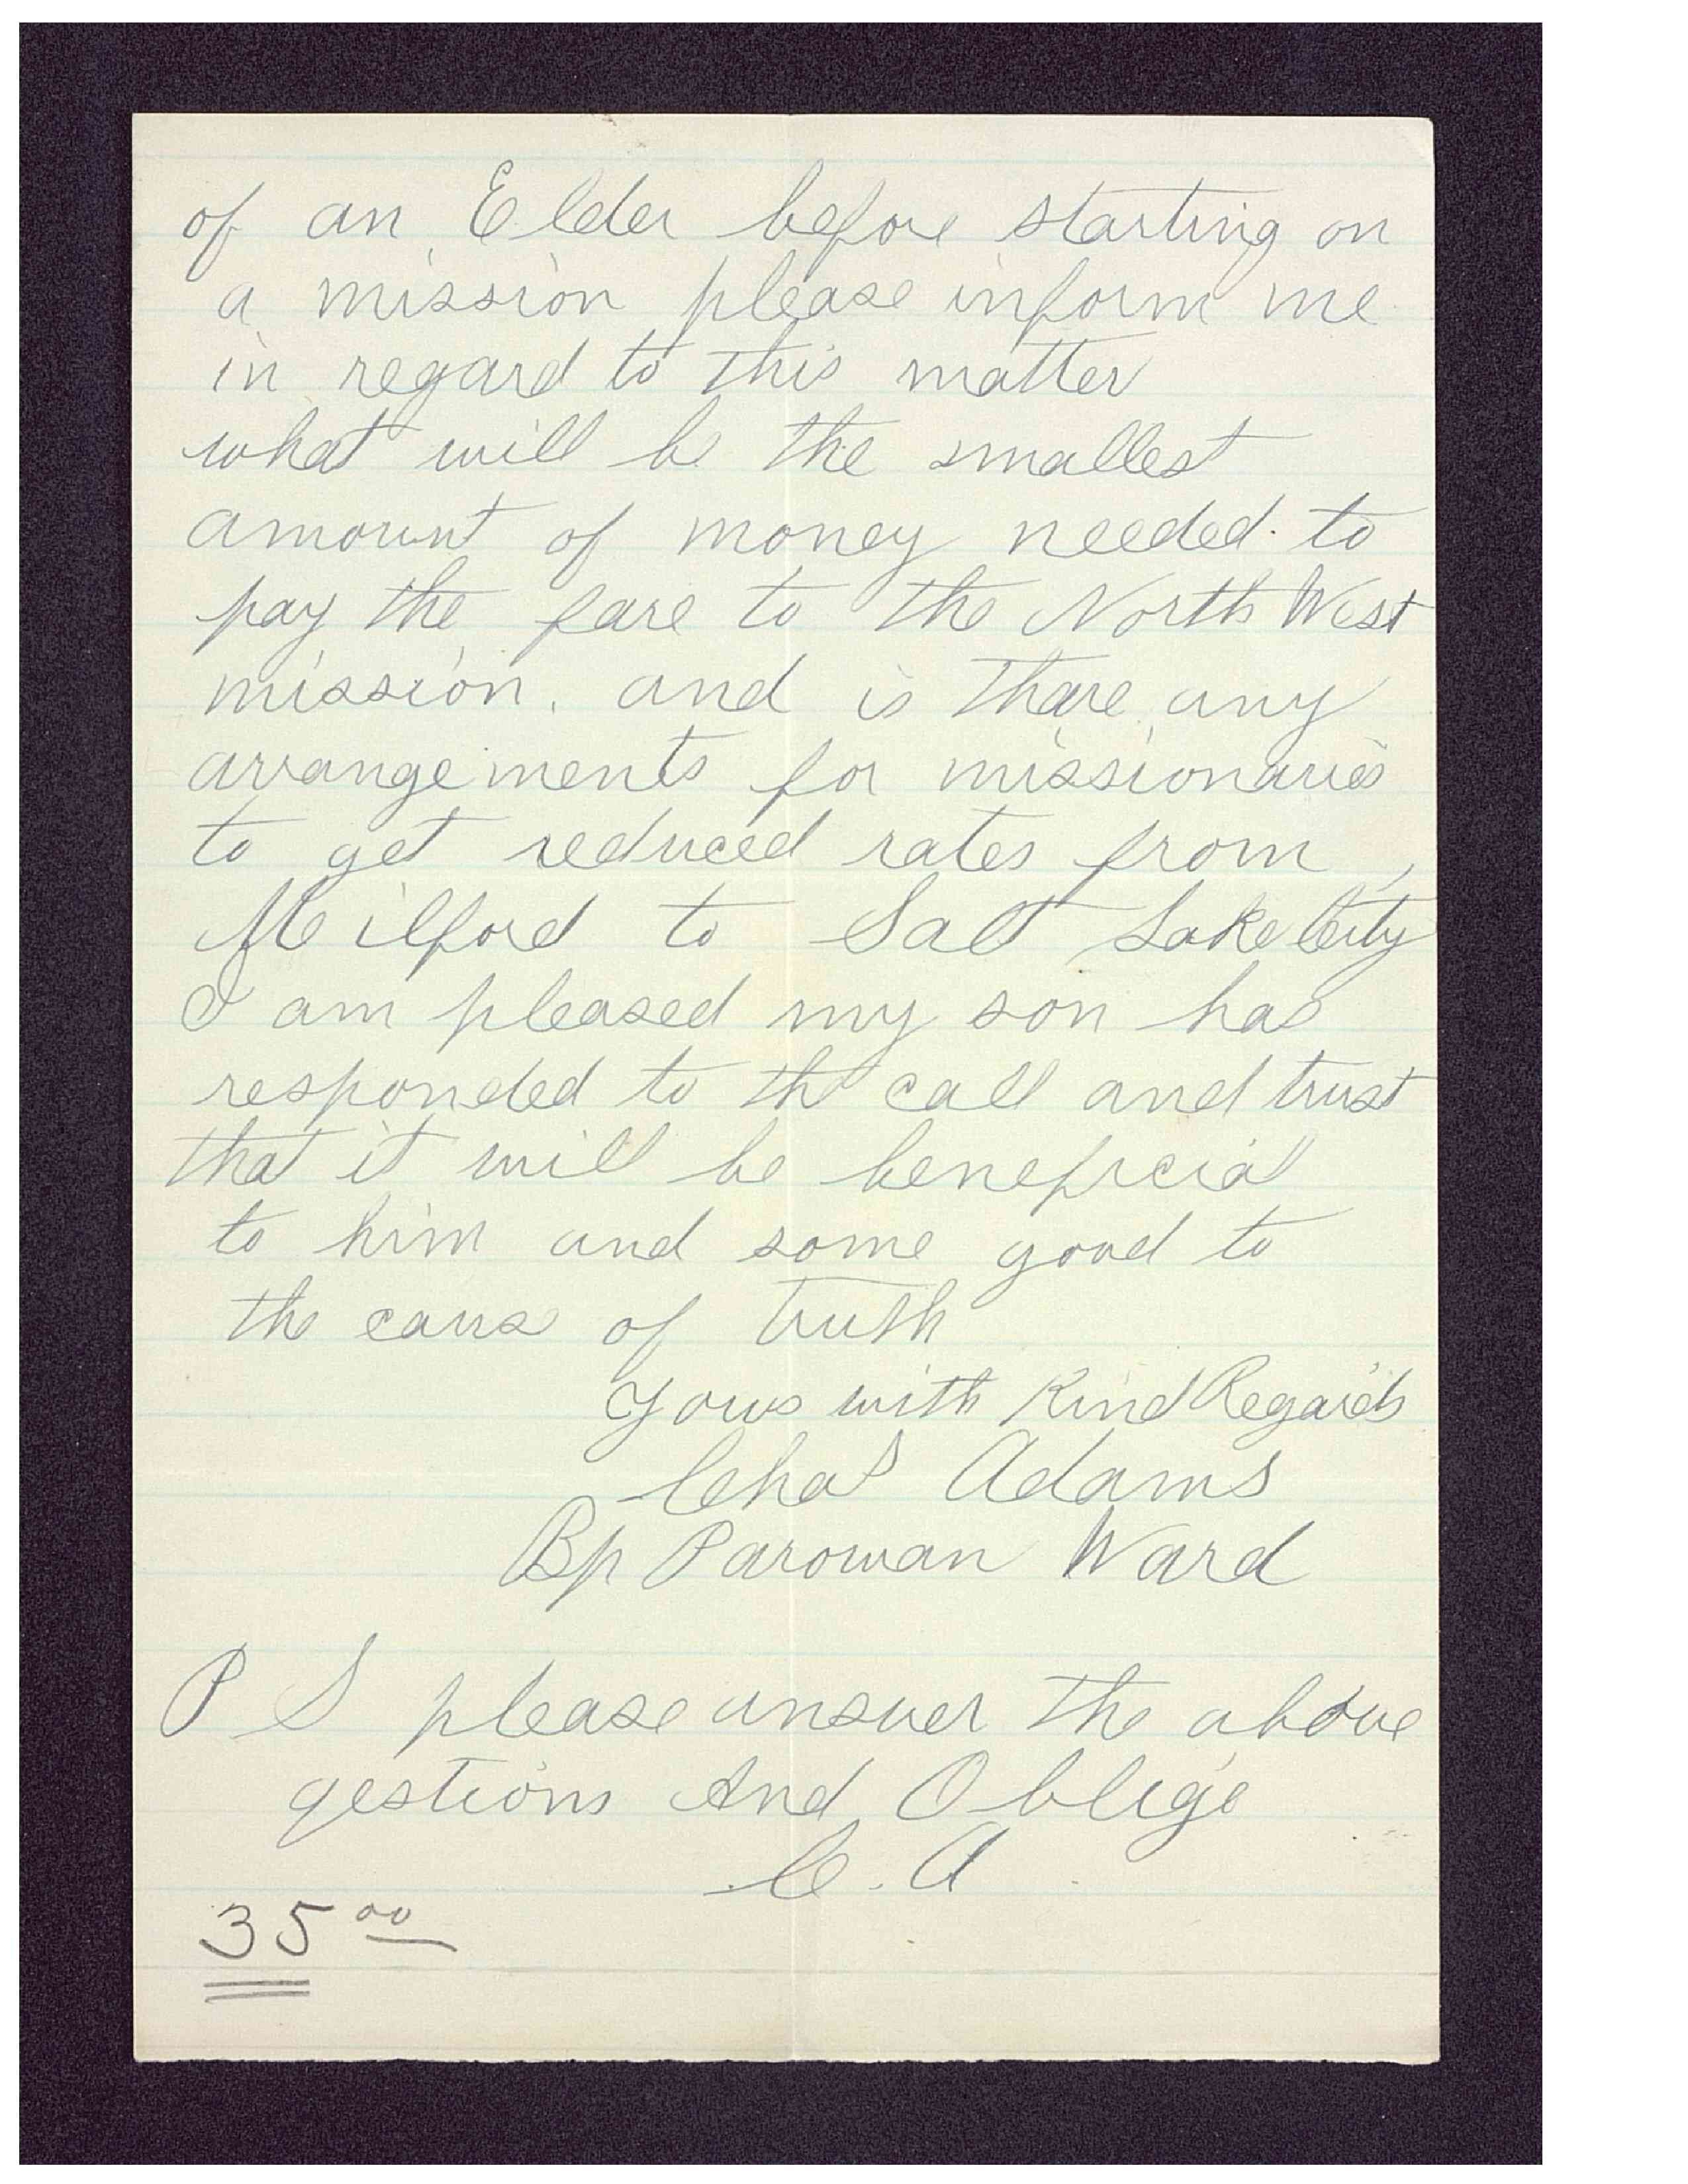 of an Elder before starting on
a mission please inform me
in regard to this matter
what will be the smallest
amount of money needed to
pay the fare to the North West
mission. and is thare any
arrangements for missionaries
to get reduced rates from
Milford to Salt Lake City
I am pleased my son has
responded to the call and trust
that it will be beneficial
to him and some good to
the cause of truth
Yours with Kind Regards
Chas Adams
Bp Parowan Ward
P S please answer the above
qestions And Oblige
C. A
35 00